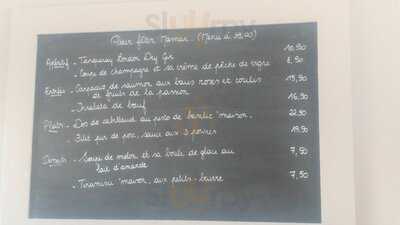 Pour fêter Maman. (Menu à 39,00)
Apéritif - Tanqueray London Dry Gin 10,90
- Coupe de champagne et sa crème de pêche de vigne 8,90
Entrées - Carpaccio de saumon aux baies roses et coulis 15,90
de fruits de la passion
- de bœuf 16,90
Plats - Dos de cabillaud au pesto de basilic "maison" 22,90
- Filet pur de porc, sauce aux 3 poivres 19,90
Desserts - Soupe de melon et sa boule de glace au 7,50
lait d'amande
- Tiramisu "maison" aux petits-beurre 7,50